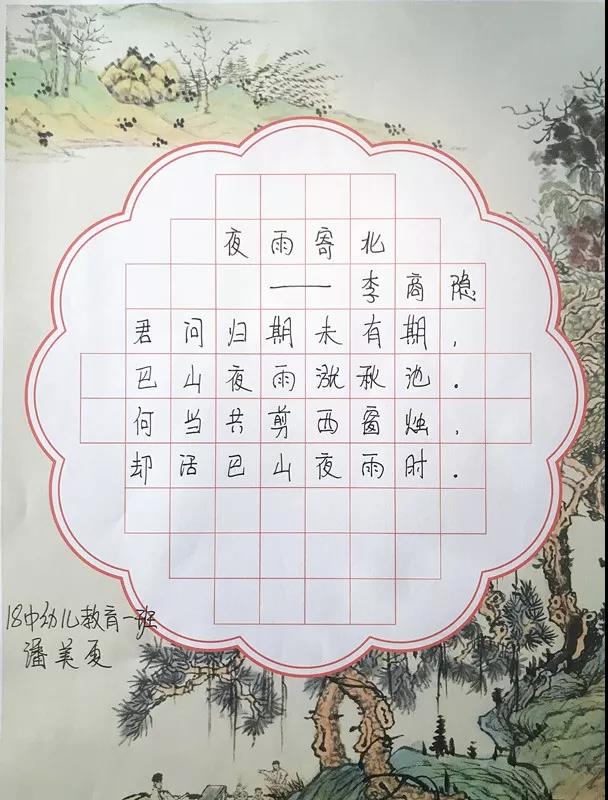 夜雨寄北
——李商隐
君问归期未有期，
巴山夜雨涨秋池.
何当共剪西窗烛，
却话巴山夜雨时.
18中幼儿教育一班
潘美夏